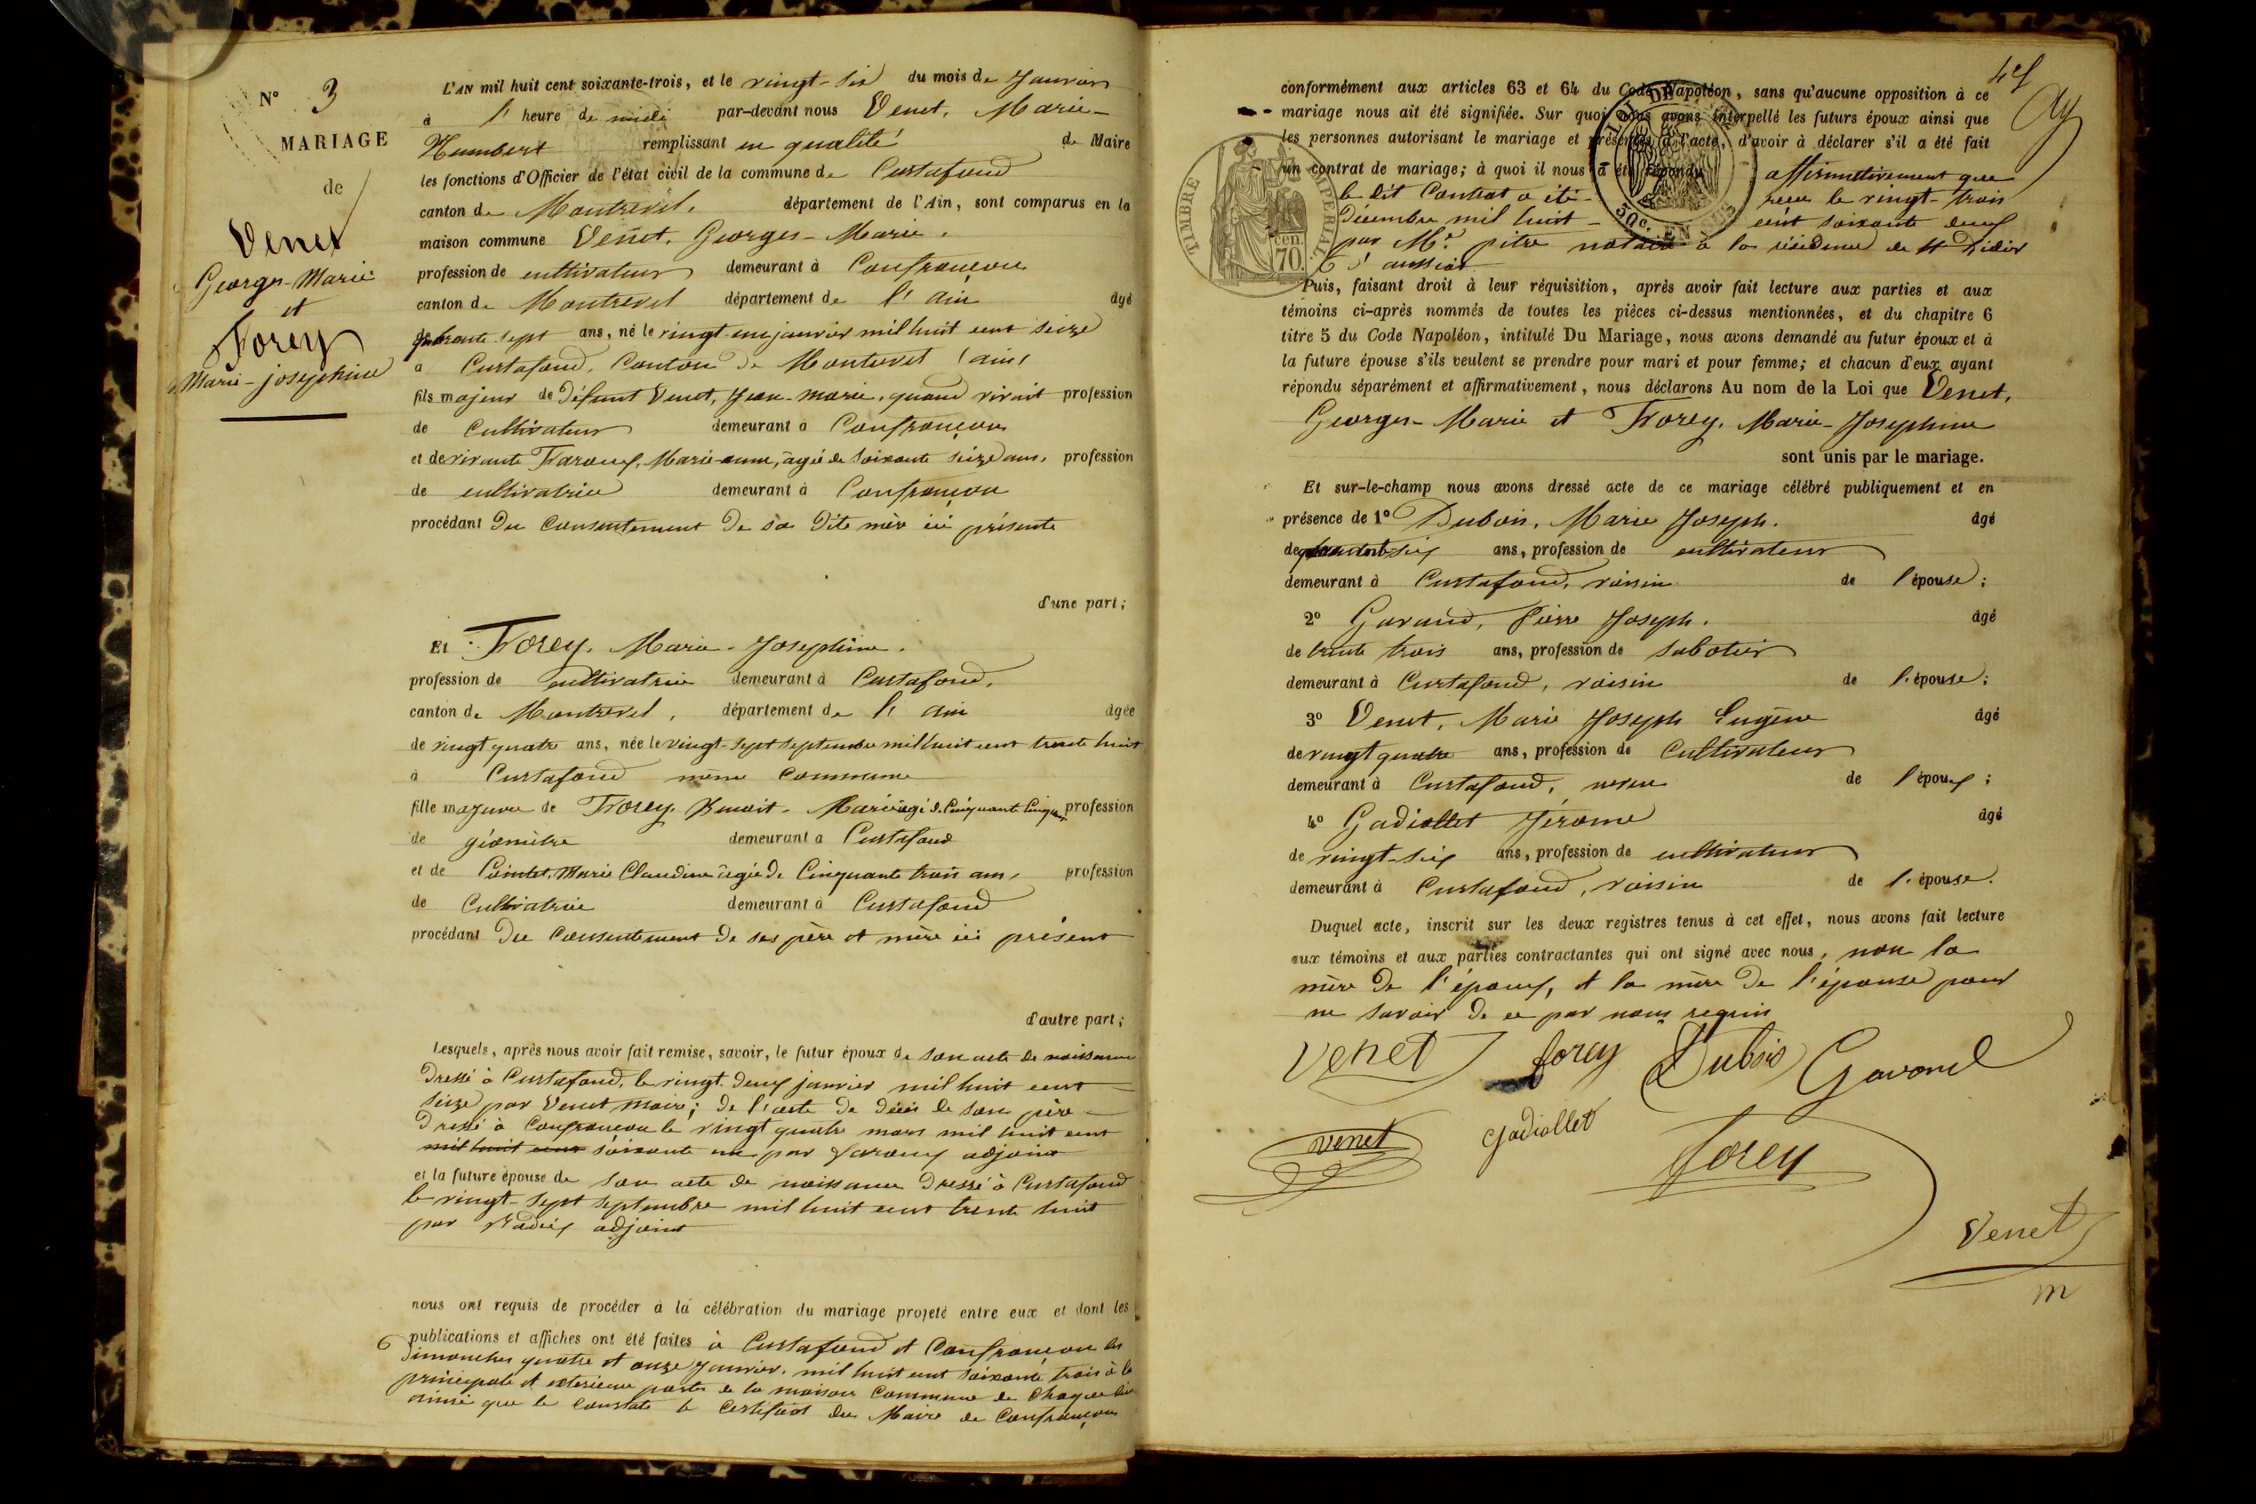 N° 3
MARIAGE
de
Venet
Georges-Marie
et
Forey
Marie-josephine
L'AN mil huit cent soixante-trois, et le vingt-six du mois de Janvier
à l'heure de midi par-devant nous Venet, Marie-
Humbert remplissant en qualité de Maire
les fonctions d'Officier de l'état civil de la commune de Curtafond
canton de Montrevel, département de l'Ain, sont comparus en la
maison commune Venet, Georges-Marie,
profession de cultivateur demeurant à Confrançon
canton de Montrevel département de l'Ain âgé
de quarante-sept ans, né le vingt-un janvier mil huit cent seize
à Curtafond, Canton de Montrevel (ain)
fils majeur de Défunt Venet, Jean-marie, quand vivait profession
de Cultivateur demeurant à Confrançon
et de vivante Marie-anne, âgée de soixante seize ans, profession
de cultivatrice demeurant à Confrançon
procédant Du Consentement De sa Dite mère ici présente
d'une part;
Et Forey, Marie-Josephine,
profession de cultivatrice demeurant à Curtafond,
canton de Montrevel, département de l'Ain âgée
de vingt quatre ans, née le vingt-sept septembre mil huit cent trente huit
à Curtafond même Commune
fille majeure de Forey, Benoit-Marie âgé de Cinquante Cinq ans profession
de géomètre demeurant à Curtafond
et de Marie Claudine âgée de Cinquante trois ans, profession
de Cultivatrice demeurant à Curtafond
procédant Du Consentement De ses père et mère ici présent
d'autre part;
Lesquels, après nous avoir fait remise, savoir, le futur époux de son acte de naissance
Dressé à Curtafond, le vingt-deux janvier mil huit cent
seize par Venet maire; de l'acte De décès de son père
Dressé à Confrançon le vingt quatre mars mil huit cent
mil huit cent soixante un par adjoint
et la future épouse de son acte de naissance Dressé à Curtafond
le vingt-sept septembre mil huit cent trente huit
par adjoint
nous ont requis de procéder à la célébration du mariage projeté entre eux et dont les
publications et affiches ont été faites à Curtafond et Confrançon les
Dimanches quatre et onze Janvier, mil huit cent soixante trois à la
principale et exterieure porte de la maison Commune de Chaque lieu
ainsi que le Constate le Certificat du Maire de Confrançon
conformément aux articles 63 et 64 du Code Napoléon, sans qu'aucune opposition à ce
mariage nous ait été signifiée. Sur quoi nous avons interpellé les futurs époux ainsi que
les personnes autorisant le mariage et présentes à l'acte, d'avoir à déclarer s'il a été fait
un contrat de mariage; à quoi il nous a été répondu affirmativement que
le dit Contrat a été reçu le vingt-trois
Décembre mil huit cent soixante deux
par Me pitre notaire à la résidence de St Didier
d'aussiat
TIMBRE IMPERIAL
70 cen.
50c. EN SUS
Puis, faisant droit à leur réquisition, après avoir fait lecture aux parties et aux
témoins ci-après nommés de toutes les pièces ci-dessus mentionnées, et du chapitre 6
titre 5 du Code Napoléon, intitulé Du Mariage, nous avons demandé au futur époux et à
la future épouse s'ils veulent se prendre pour mari et pour femme; et chacun d'eux ayant
répondu séparément et affirmativement, nous déclarons Au nom de la Loi que Venet,
Georges-Marie et Forey, Marie-Josephine
sont unis par le mariage.
Et sur-le-champ nous avons dressé acte de ce mariage célébré publiquement et en
présence de 1° Dubois, Marie Joseph. âgé
de ans, profession de cultivateur
demeurant à Curtafond, voisin de l'épouse;
2° Gavand, Pierre Joseph. âgé
de trente trois ans, profession de sabotier
demeurant à Curtafond, voisin de l'épouse;
3° Venet, Marie Joseph Eugène âgé
de vingt quatre ans, profession de Cultivateur
demeurant à Curtafond, neveu de l'époux;
4° Gadiollet Jérome âgé
de vingt-six ans, profession de cultivateur
demeurant à Curtafond, voisin de l'épouse.
Duquel acte, inscrit sur les deux registres tenus à cet effet, nous avons fait lecture
aux témoins et aux parties contractantes qui ont signé avec nous, non la
mère De l'époux, et la mère De l'épouse pour
ne savoir De ce par nous requis
Venet forey Dubois Gavand
venet gadiollet forey
Venet
m